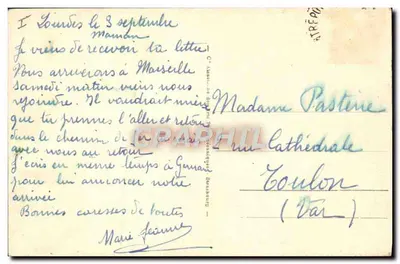 I Lourdes le 3 septembre
Maman
Je viens de recevoir ta lettre
Nous arriverons à Marseille
samedi matin viens nous
rejoindre. Il vaudrait mieux
que tu prennes l'aller et retour
dans le chemin de fer
avec nous au retour
J'écris en même temps à
pour lui annoncer notre
arrivée
Bonnes caresses de toutes
Marie Jeanne
Madame Pasteire
rue Cathédrale
Toulon
(Var)
CPARPHIL.COM